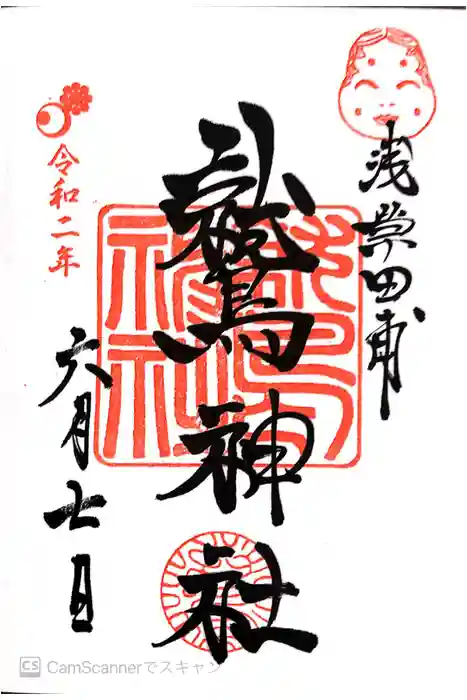 浅草田甫
鷲神社
令和二年
六月七日
CS CamScannerでスキャン